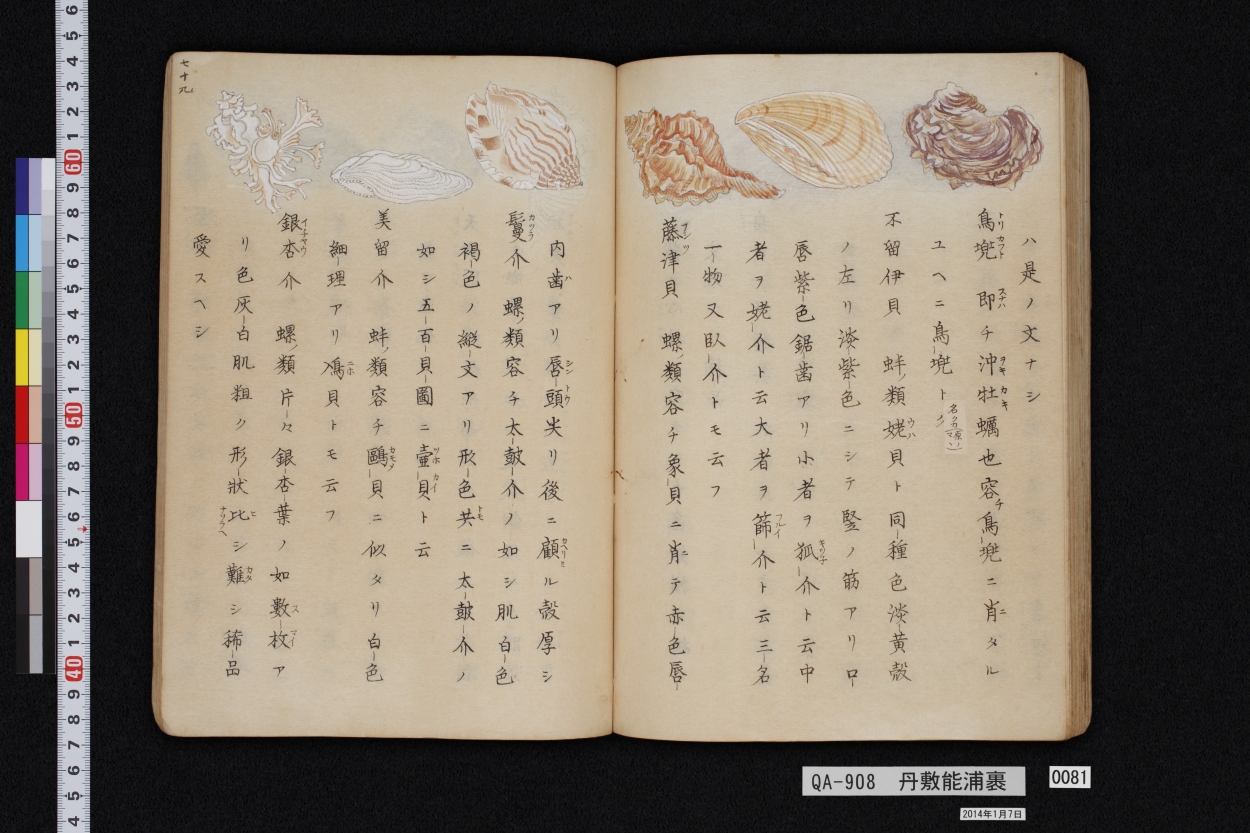 ハ是ノ文ナシ
鳥兜 即チ沖牡蠣也容チ鳥兜ニ肖タル
ユヘニ鳥兜ト
不留伊貝 蚌ノ類姥貝ト同種色淡黄殻
ノ左リ淡紫色ニシテ竪ノ筋アリ口
唇紫色鋸歯アリ小者ヲ狐介ト云中
者ヲ姥介ト云大者ヲ篩介ト云三名
一物又臥介トモ云フ
藤津貝 螺ノ類容チ象貝ニ肖テ赤色唇
内歯アリ唇頭尖リ後ニ顧ル殻厚シ
鬘介 螺ノ類容チ太鼓介ノ如シ肌白色
褐色ノ縦文アリ形色共ニ太鼓介ノ
如シ五百貝圖ニ壷貝ト云
美留介 蚌ノ類容チ鷗貝ニ似タリ白色
細理アリ 貝トモ云フ
銀杏介 螺ノ類片々銀杏葉ノ如數枚ア
リ色灰白肌粗ク形状比シ難シ稀品
愛スヘシ
七十九
QA-908 丹敷能浦裹
0081
2014年1月7日